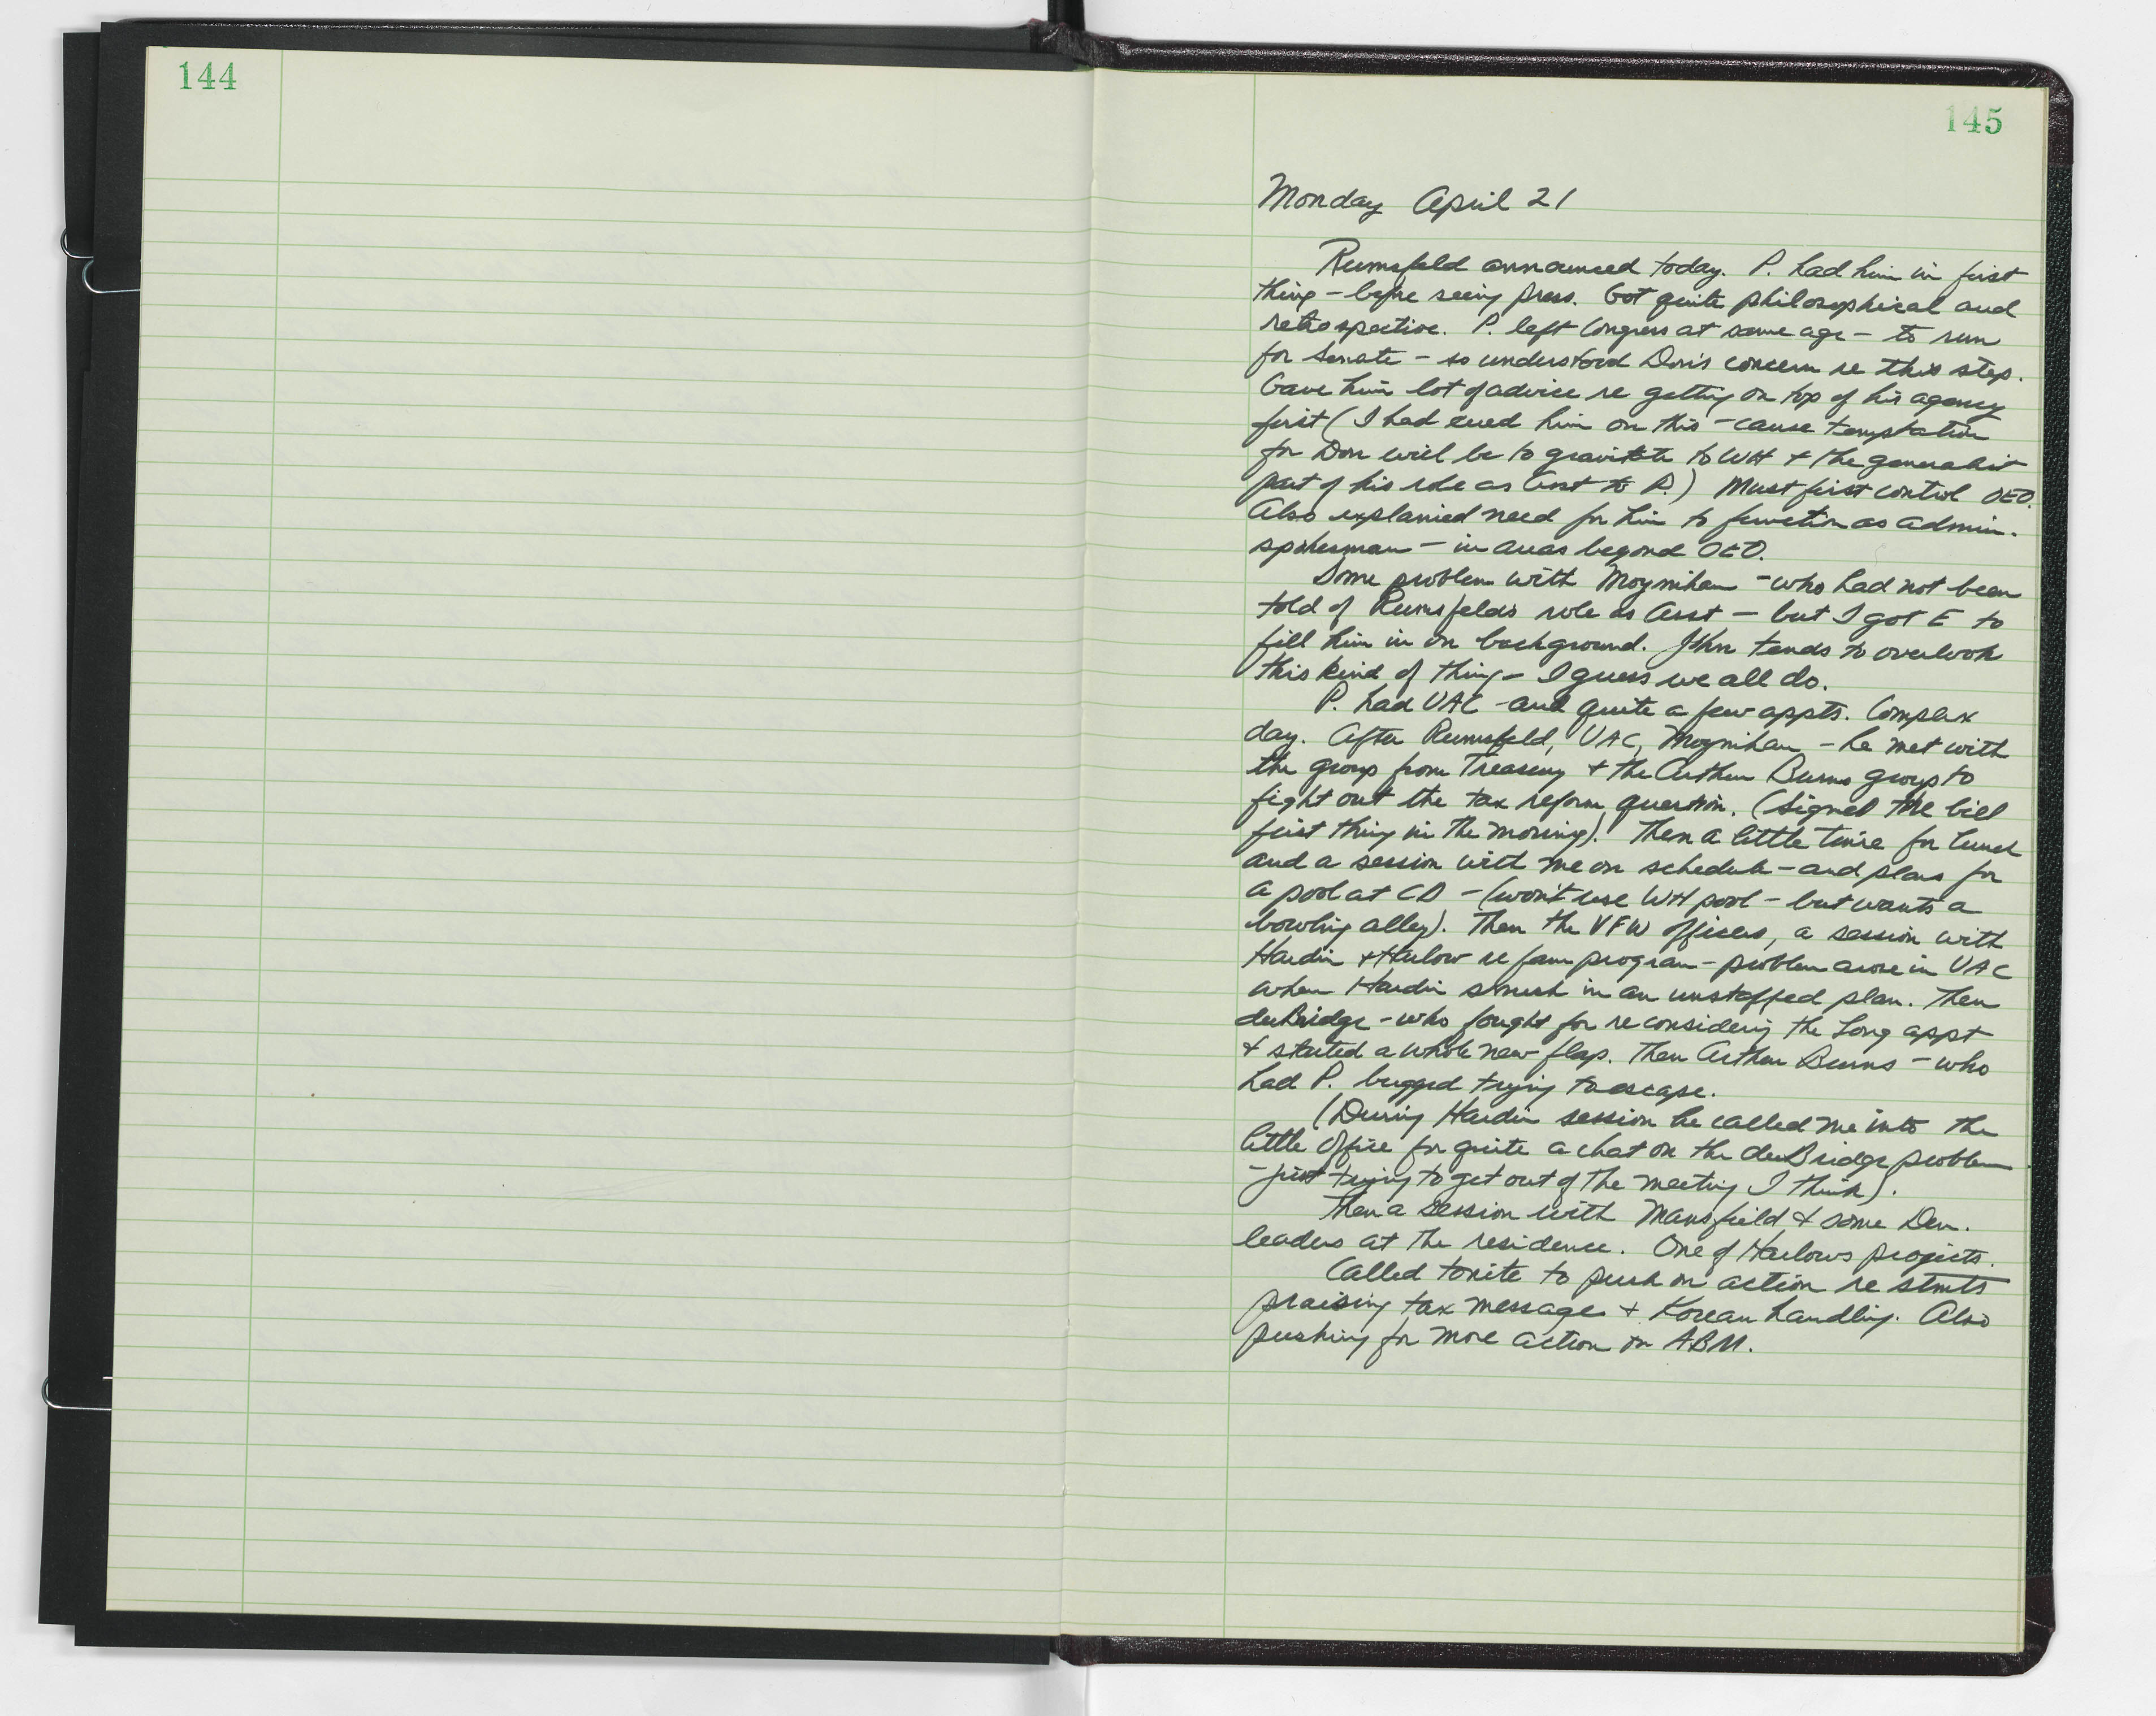 144
145
Monday April 21
Rumsfeld announced today. P. had him in first
thing - before seeing press. Got quite philosophical and
retrospective. P. left Congress at same age - to run
for Senate - so understood Don's concern re this step.
Gave him lot of advice re getting on top of his agency
first (I had cued him on this - cause temptation
for Don will be to gravitate to WH + the generalist
part of his role as Asst to P.) Must first control OEO.
Also explained need for him to function as admin.
spokesman - in areas beyond OEO.
Some problem with Moynihan - who had not been
told of Rumsfelds role as Asst - but I got E to
fill him in on background. John tends to overlook
this kind of thing - I guess we all do.
P. had UAC and quite a few appts. Complex
day. After Rumsfeld, UAC, Moynihan - he met with
the group from Treasury + the Arthur Burns group to
fight out the tax reform question. (Signed the bill
first thing in the morning). Then a little time for lunch
and a session with me on schedule - and plans for
a pool at CD - (won't use WH pool - but wants a
bowling alley). Then the VFW officers, a session with
Hardin + Harlow re farm program - problem arose in UAC
when Hardin snuck in an unstaffed plan. Then
duBridge - who fought for reconsidering the Long appt
+ started a whole new flap. Then Arthur Burns - who
had P. bugged trying to escape.
(During Hardin session he called me into the
little office for quite a chat on the duBridge problem
- just trying to get out of the meeting I think).
Then a session with Mansfield + some Dem.
leaders at the residence. One of Harlows projects.
Called tonite to push on action re stmts
praising tax message + Korean handling. Also
pushing for more action on ABM.